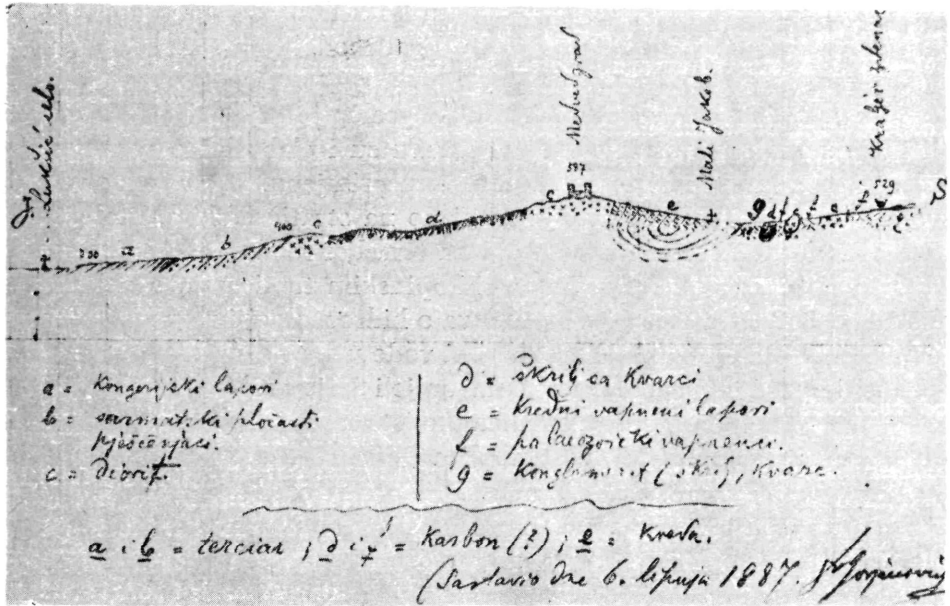 Medvedgrad
597
Mali Jakob.
Kraljev
529
J.
S
200
a
b
400
c
d
c
e
g
a = Kongerijski lapori
b = sarmatski pločasti
pješčenjaci.
c = Diorit.
d = škrilj sa kvarci
e = Kredni vapneni lapori
f = palaeozoički vapnenci.
g = Konglomerat (škrilj, kvarc.
a i b = terciar ; d i f = Karbon (?) ; e = Kreda.
(Sastavio dne 6. lipnja 1887.